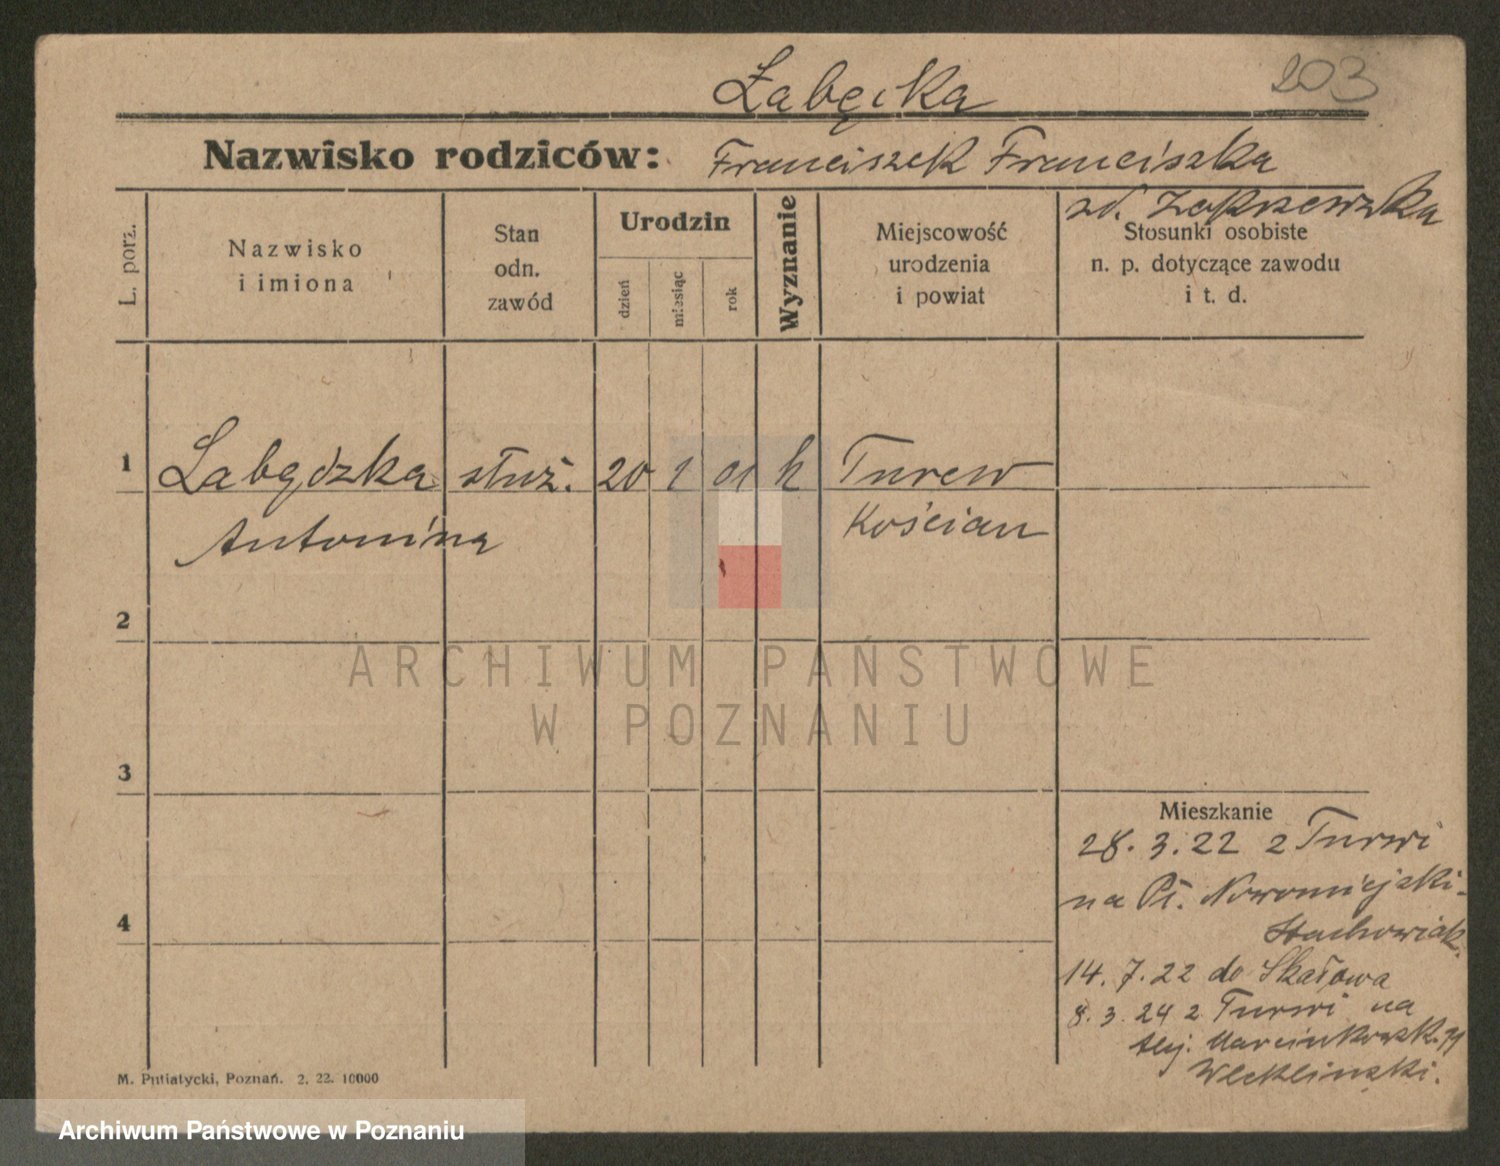 Łabęcka
203
Nazwisko rodziców: Franciszek Franciszka
zd. Zakrzewska
L. porz.
Nazwisko
i imiona
Stan
odn.
zawód
Urodzin
dzień
miesiąc
rok
Wyznanie
Miejscowość
urodzenia
i powiat
Stosunki osobiste
n. p. dotyczące zawodu
i t. d.
1 Łabędzka służ. 20 1 01 k Turew
Antonina Kościan
2
3
4
Mieszkanie
28. 3. 22 z Turwi
na Pl. Nowomiejski-
Stachowiak.
14. 7. 22 do Skałowa
8. 3. 24 z Turwi na
Alej. Marcinkowsk.
M. Putiatycki, Poznań. 2. 22. 10000
ARCHIWUM PAŃSTWOWE
W POZNANIU
Archiwum Państwowe w Poznaniu